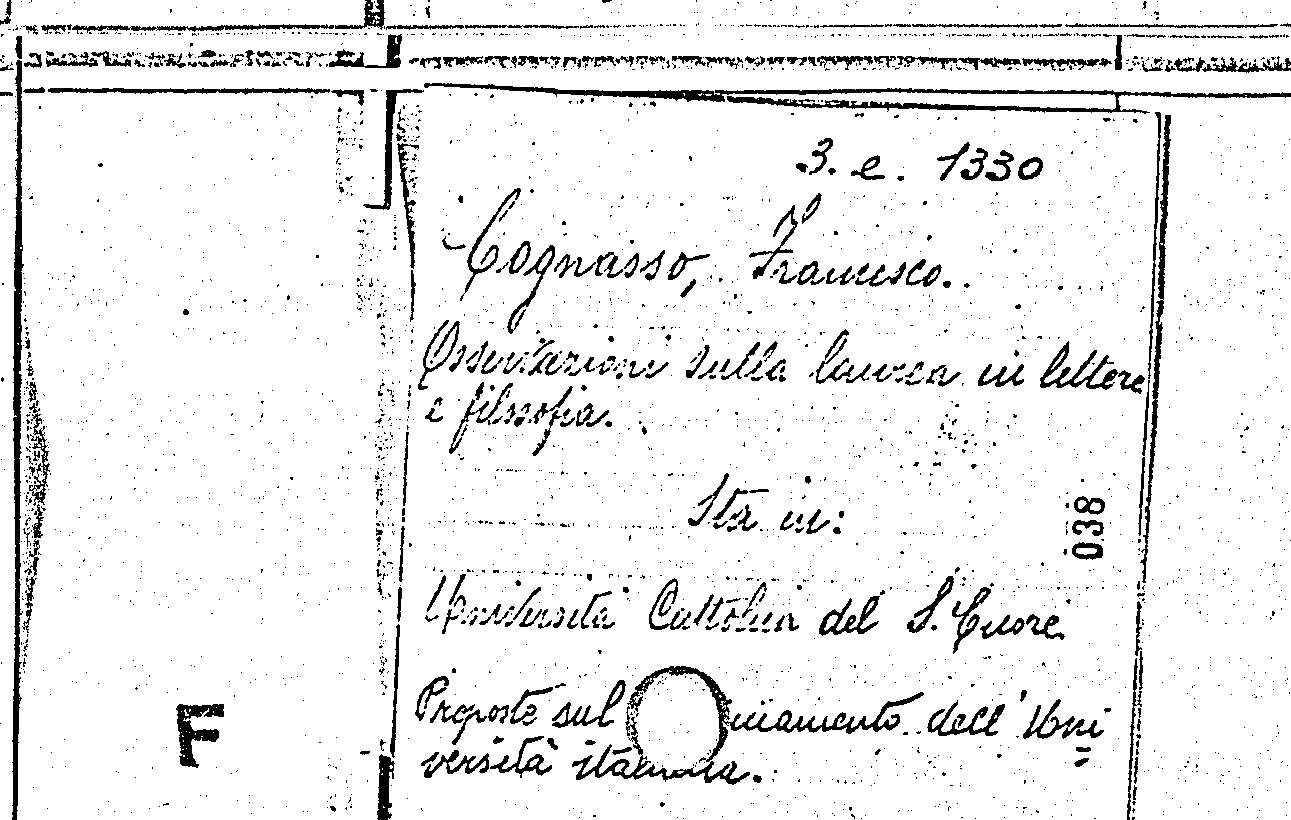 3. e. 1330
Cognasso, Francesco.
Osservazioni sulla laurea in lettere
e filosofia.
Sta in:
038
Università Cattolica del S. Cuore
Proposte sul dell' Uni
F
versità italiana.